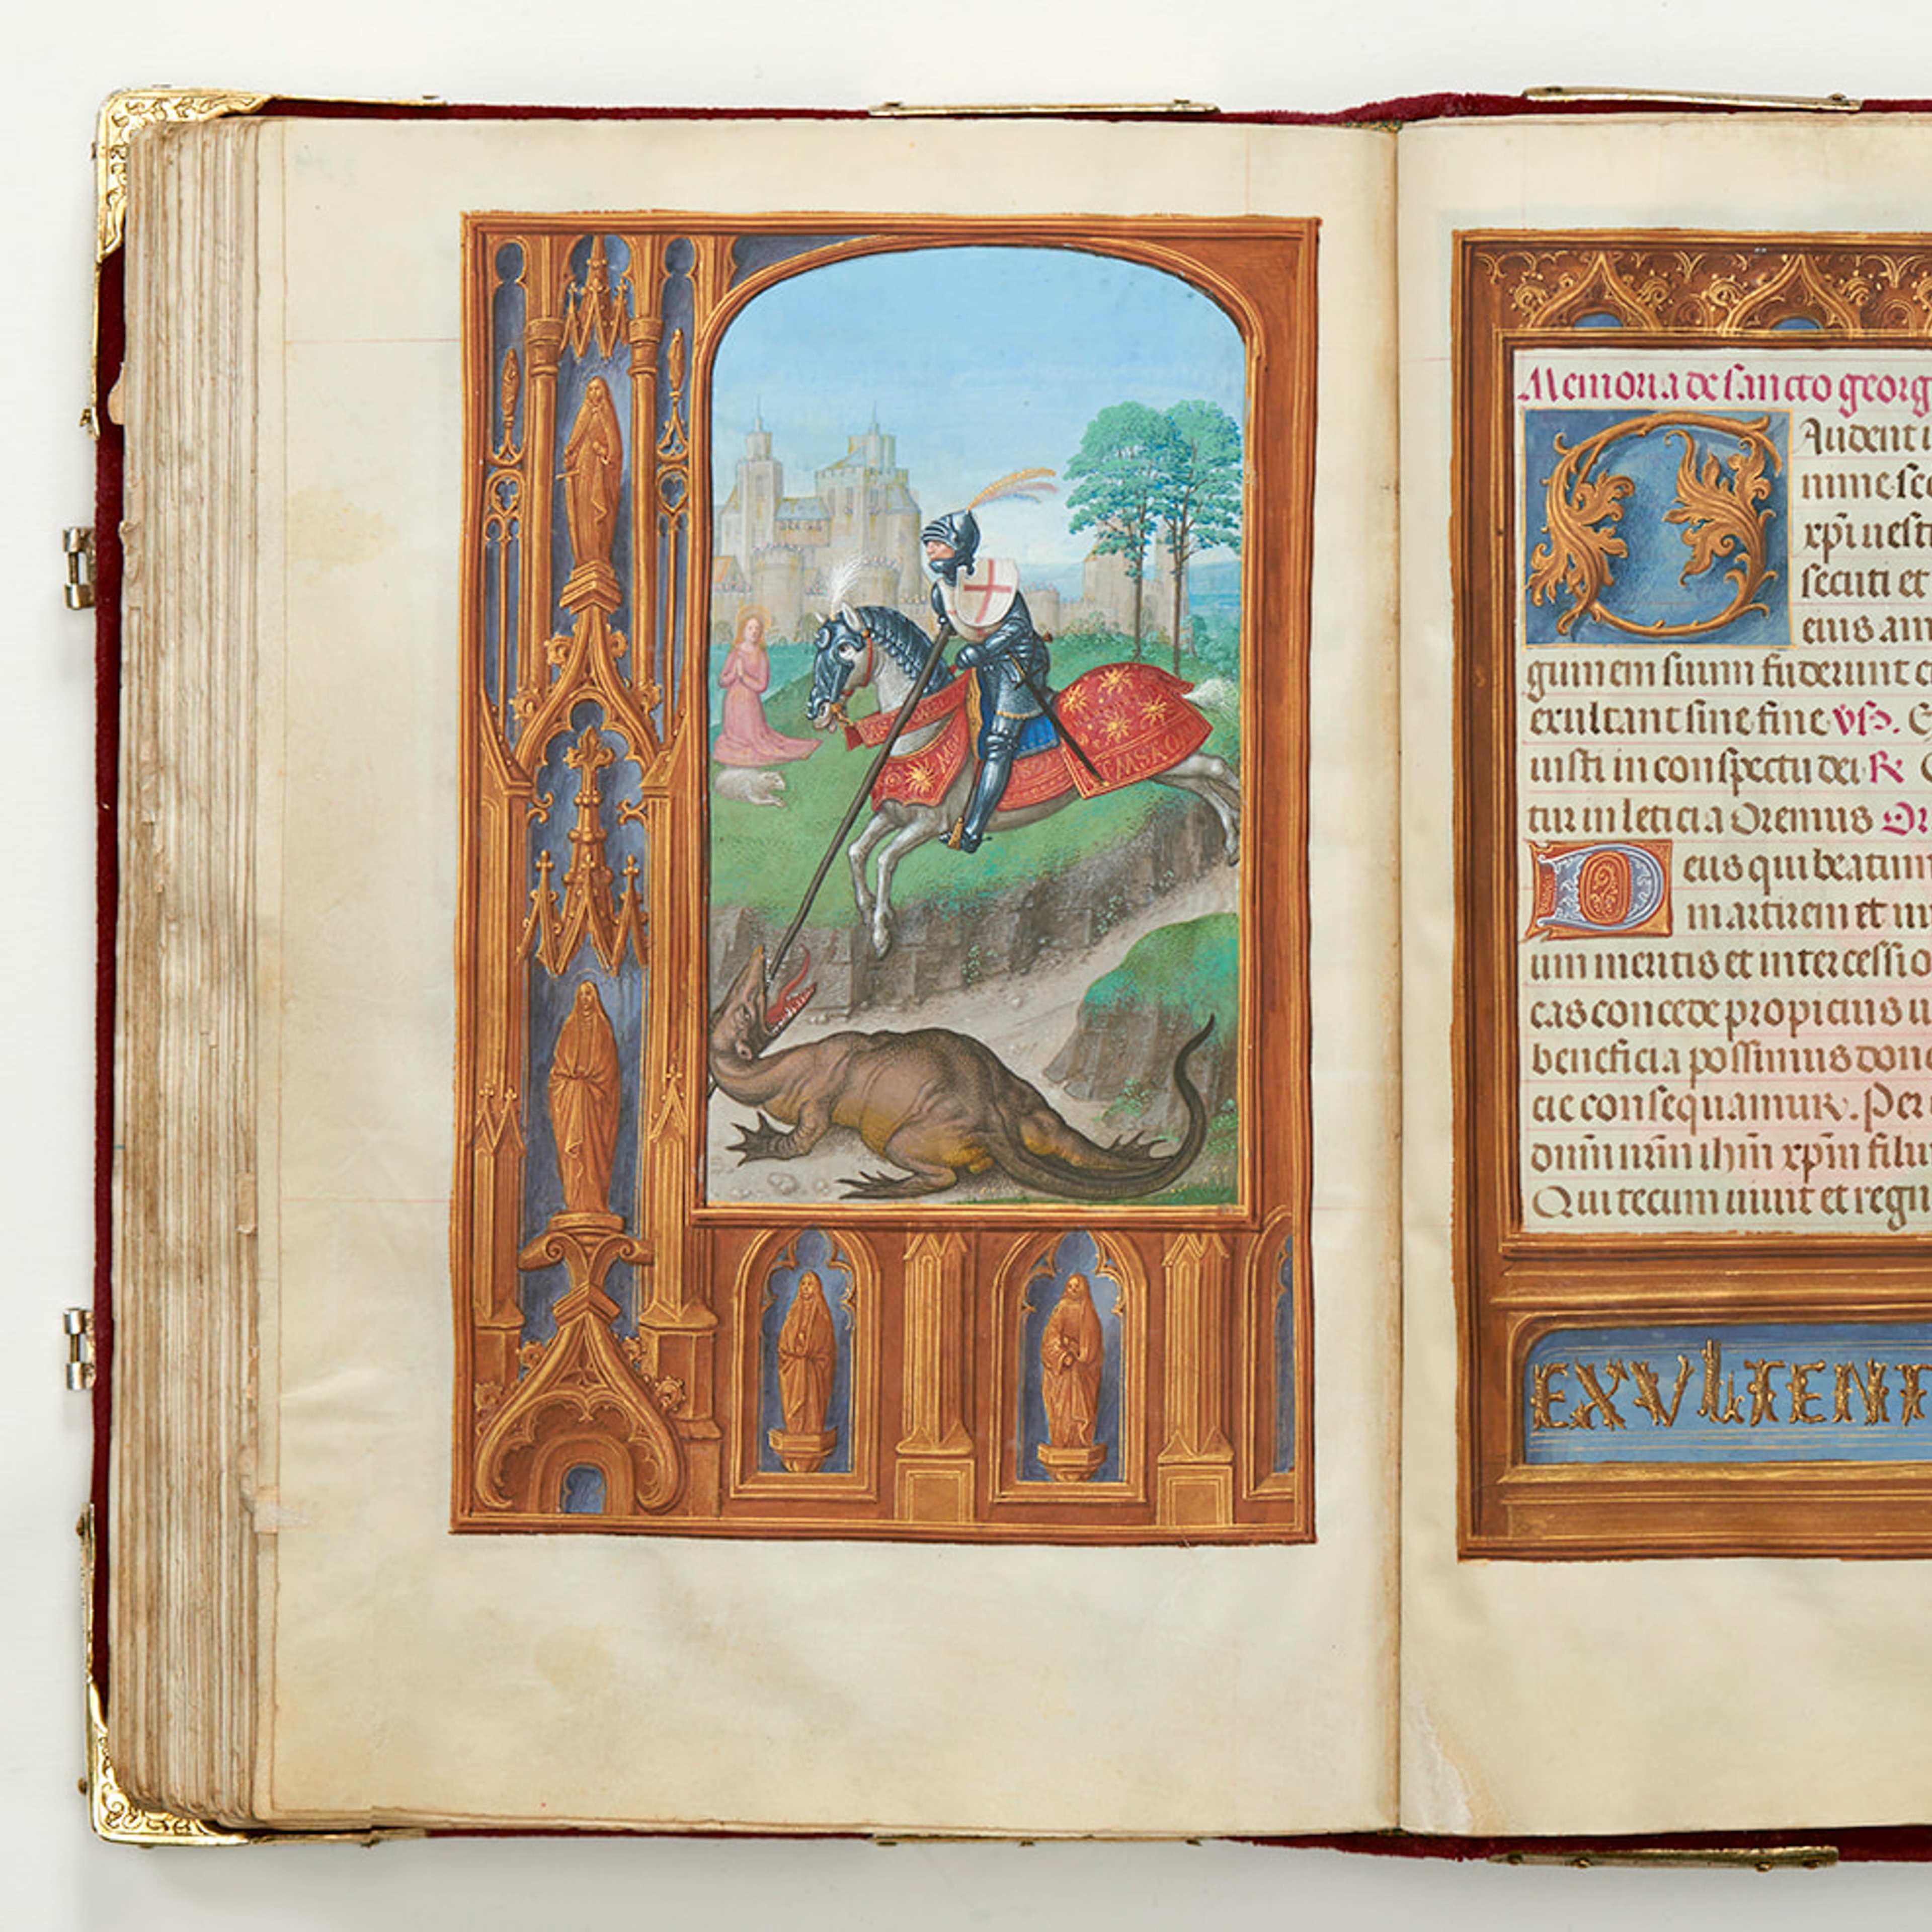 Memoria de sancto georg
Gaudent i
nime sc
xp̄i uesti
secuti et
eius am
guinem suum fuderunt
exultant sine fine v̄s.
iusti in conspectu dei R
tur in leticia Oremus Or
Deus qui beatum
martirem et
um meritis et intercessio
cas concede propicius u
beneficia possimus don
cie consequamur. Per
dn̄m nr̄m ih̄m xp̄m filiu
Qui tecum uiuit et regn
EXVLTENT